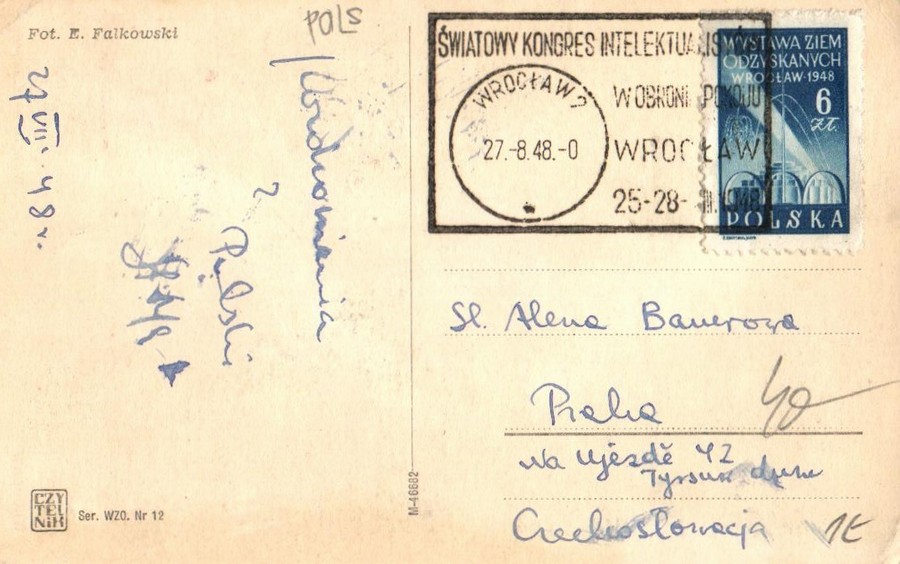 Fot. E. Falkowski
POLS
27 VIII. 48 r.
Pozdrowienia
z Polski
ŚWIATOWY KONGRES INTELEKTUALISTÓW
W OBRONIE POKOJU
WROCŁAW
25-28-VIII.1948
WROCŁAW 2
27.-8.48.-0
WYSTAWA ZIEM
ODZYSKANYCH
WROCŁAW·1948
6
ZŁ.
POLSKA
Sl. Alena Bauerova
Praha
40
Na Ujezdě 42
Tyršův dům
Czechosłowacja
1E
CZY
TEL
NIK
Ser. WZO. Nr 12
M-46682